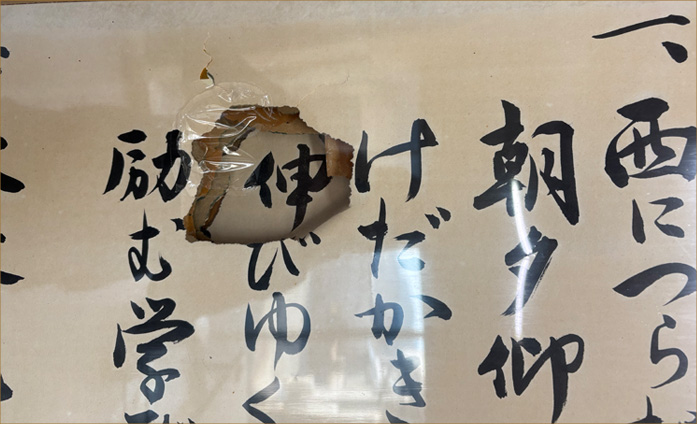 一、西につらな
朝夕仰
けだかき
伸びゆく
励む学